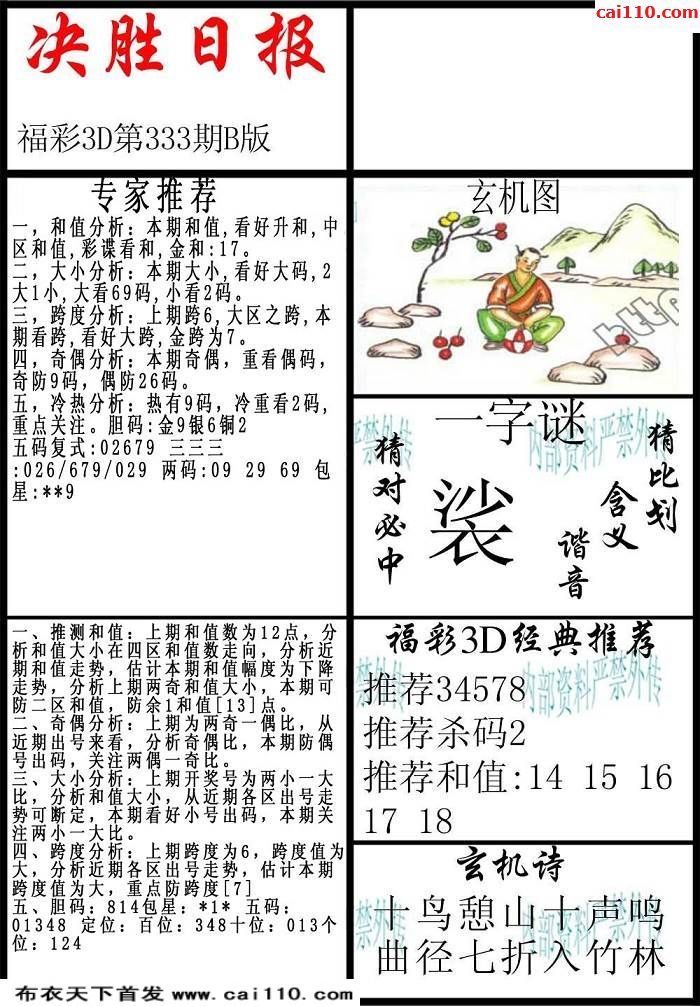 cai110.com
决胜日报
福彩3D第333期B版
专家推荐
一，和值分析：本期和值,看好升和,中
区和值,彩谍看和,金和:17。
二，大小分析：本期大小,看好大码,2
大1小,大看69码,小看2码。
三，跨度分析：上期跨6,大区之跨,本
期看跨,看好大跨,金跨为7。
四，奇偶分析：本期奇偶，重看偶码，
奇防9码，偶防26码。
五，冷热分析：热有9码，冷重看2码，
重点关注。胆码:金9银6铜2
五码复式:02679 三三三
:026/679/029 两码:09 29 69 包
星:**9
玄机图
http
一字谜
猜对必中
裟
猜比划
含义
谐音
内部资料严禁外传
一、推测和值：上期和值数为12点，分
析和值大小在四区和值数走向，分析近
期和值走势，估计本期和值幅度为下降
走势，分析上期两奇和值大小，本期可
防二区和值，防余1和值[13]点。
二、奇偶分析：上期为两奇一偶比，从
近期出号来看，分析奇偶比，本期防偶
号出码，关注两偶一奇比。
三、大小分析：上期开奖号为两小一大
比，分析和值大小，从近期各区出号走
势可断定，本期看好小号出码，本期关
注两小一大比。
四、跨度分析：上期跨度为6，跨度值为
大，分析近期各区出号走势，估计本期
跨度值为大，重点防跨度[7]
五、胆码：814包星：*1* 五码：
01348 定位：百位：348十位：013个
位：124
福彩3D经典推荐
内部资料严禁外传
推荐34578
推荐杀码2
推荐和值:14 15 16
17 18
玄机诗
十鸟憩山十声鸣
曲径七折入竹林
布衣天下首发 www.cai110.com